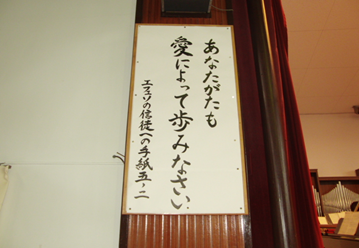 あなたがたも
愛によって歩みなさい
エフェソの信徒への手紙五・二